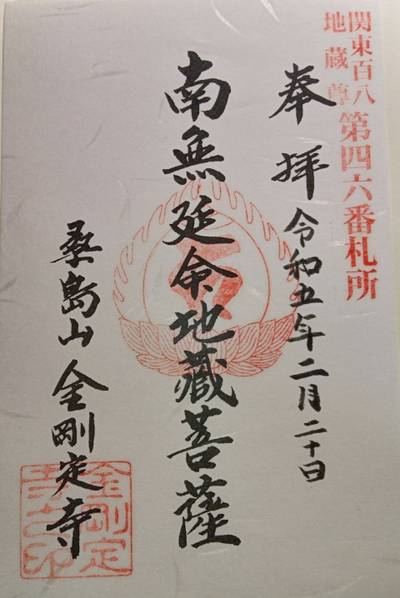 関東百八
地蔵尊
第四六番札所
奉拝
令和五年二月二十日
南無延命地蔵菩薩
桑島山
金剛定寺
金剛定
寺之印